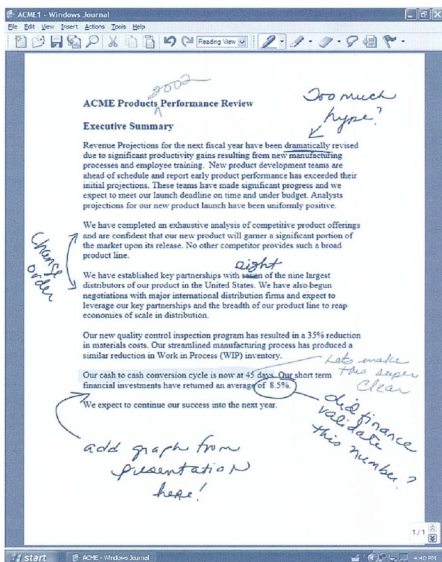 ACME1 - Windows Journal
File Edit View Insert Actions Tools Help
Reading View
good
ACME Products Performance Review
Too much
hype?
Executive Summary
Revenue Projections for the next fiscal year have been dramatically revised
due to significant productivity gains resulting from new manufacturing
processes and employee training. New product development teams are
ahead of schedule and report early product performance has exceeded their
initial projections. These teams have made significant progress and we
expect to meet our launch deadline on time and under budget. Analysts
projections for our new product launch have been uniformly positive.
Change
order
We have completed an exhaustive analysis of competitive product offerings
and are confident that our new product will garner a significant portion of
the market upon its release. No other competitor provides such a broad
product line.
eight
We have established key partnerships with seven of the nine largest
distributors of our product in the United States. We have also begun
negotiations with major international distribution firms and expect to
leverage our key partnerships and the breadth of our product line to reap
economies of scale in distribution.
Our new quality control inspection program has resulted in a 35% reduction
in materials costs. Our streamlined manufacturing process has produced a
similar reduction in Work in Process (WIP) inventory.
Lets make
this super
Clear
Our cash to cash conversion cycle is now at 45 days. Our short term
financial investments have returned an average of 8.5%.
did finance
validate
this number?
We expect to continue our success into the next year.
add graph from
presentation
here!
1/1
start
ACME - Windows Journal
4:40 PM